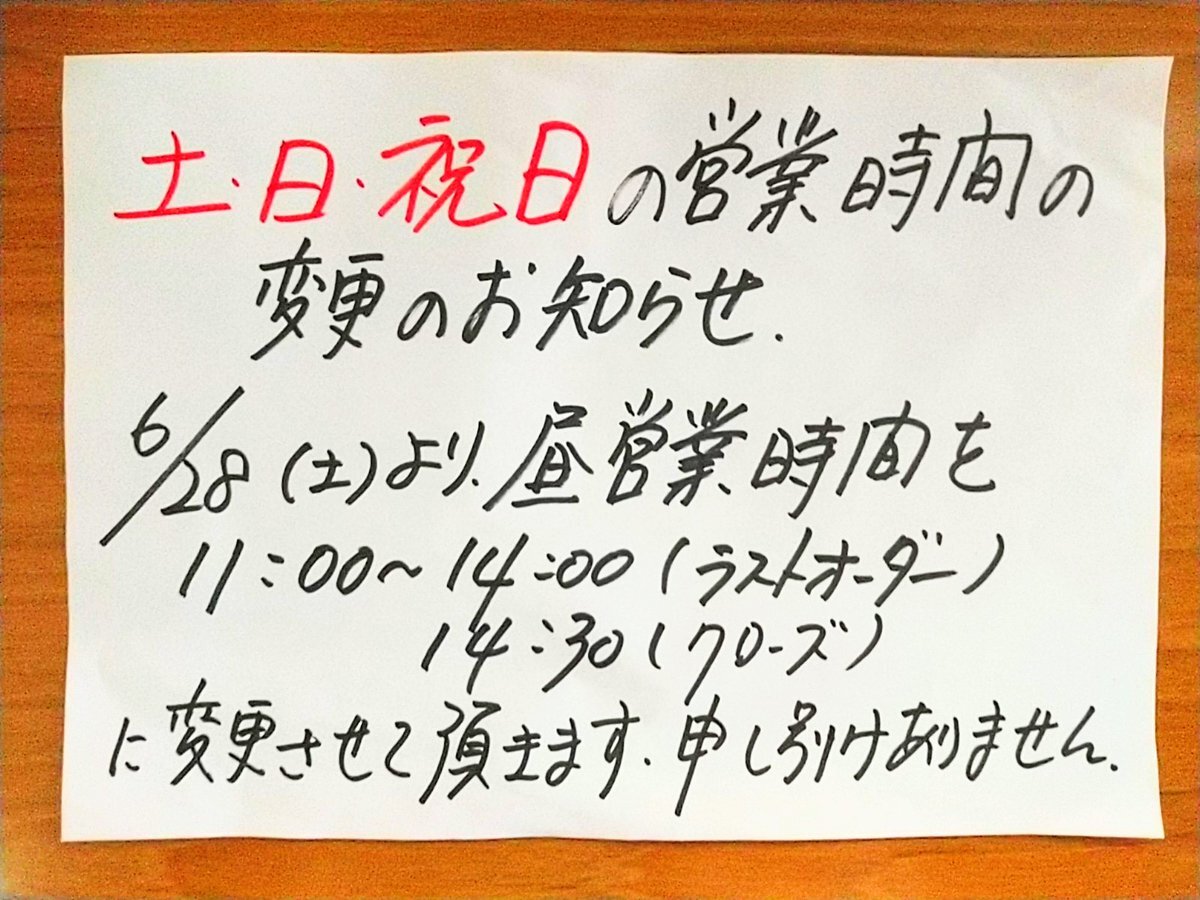 土・日・祝日の営業時間の
変更のお知らせ.
6/28(土)より、昼営業時間を
11:00~14:00(ラストオーダー)
14:30(クローズ)
に変更させて頂きます、申し訳けありません.